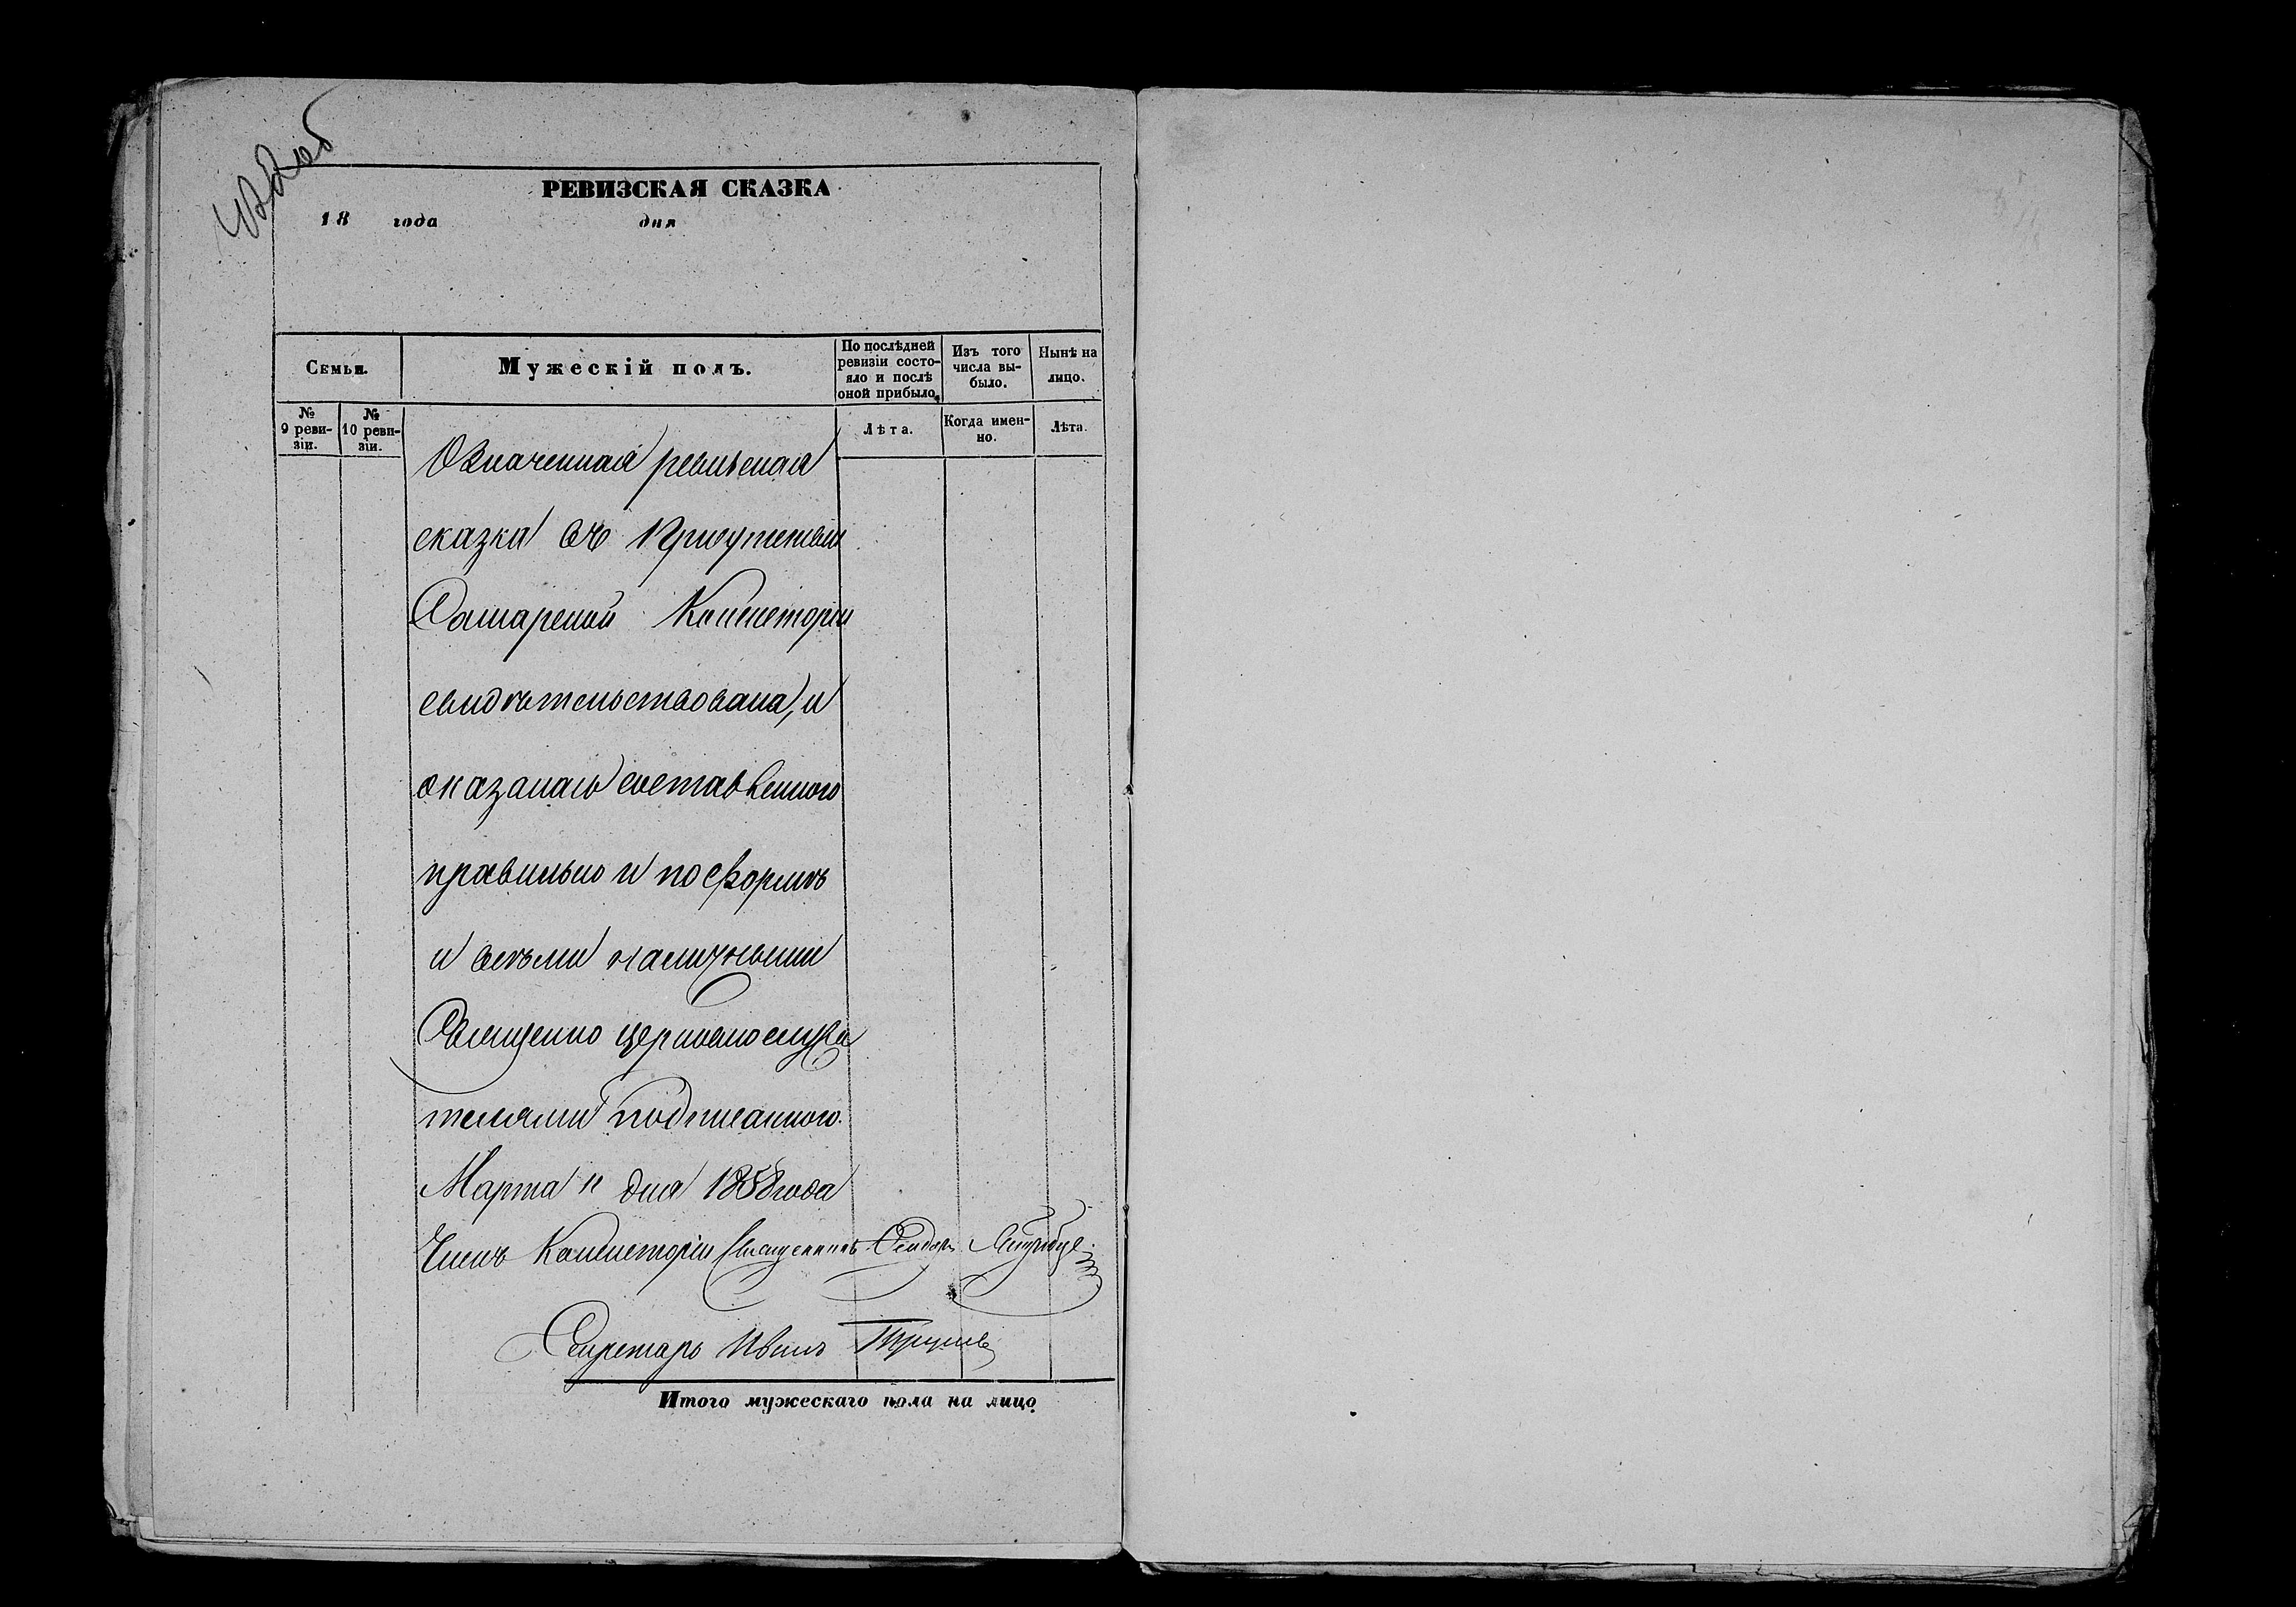 РЕВИЗСКАЯ СКАЗКА
18 года дня
Семьи.
Мужескій полъ.
По послѣдней ревизіи состо-
яло и послѣ оной прибыло.
Изъ того числа вы-
было.
Нынѣ на лицо.
№ 9 реви-
зіи.
№ 10 реви-
зіи.
Лѣта.
Когда имен-
но.
Лѣта.
Означенная ревизская
сказка въ Присутствіи
Самарской Консисторіи
свидѣтельствована, и
оказалась составленною
правильно и по формѣ
и всѣми наличными
Священно церковнослужи
телями подписанною.
Марта 11 дня 1858 года
Членъ Консисторіи Священникъ
Секретарь Иванъ
Итого мужескаго пола на лицо